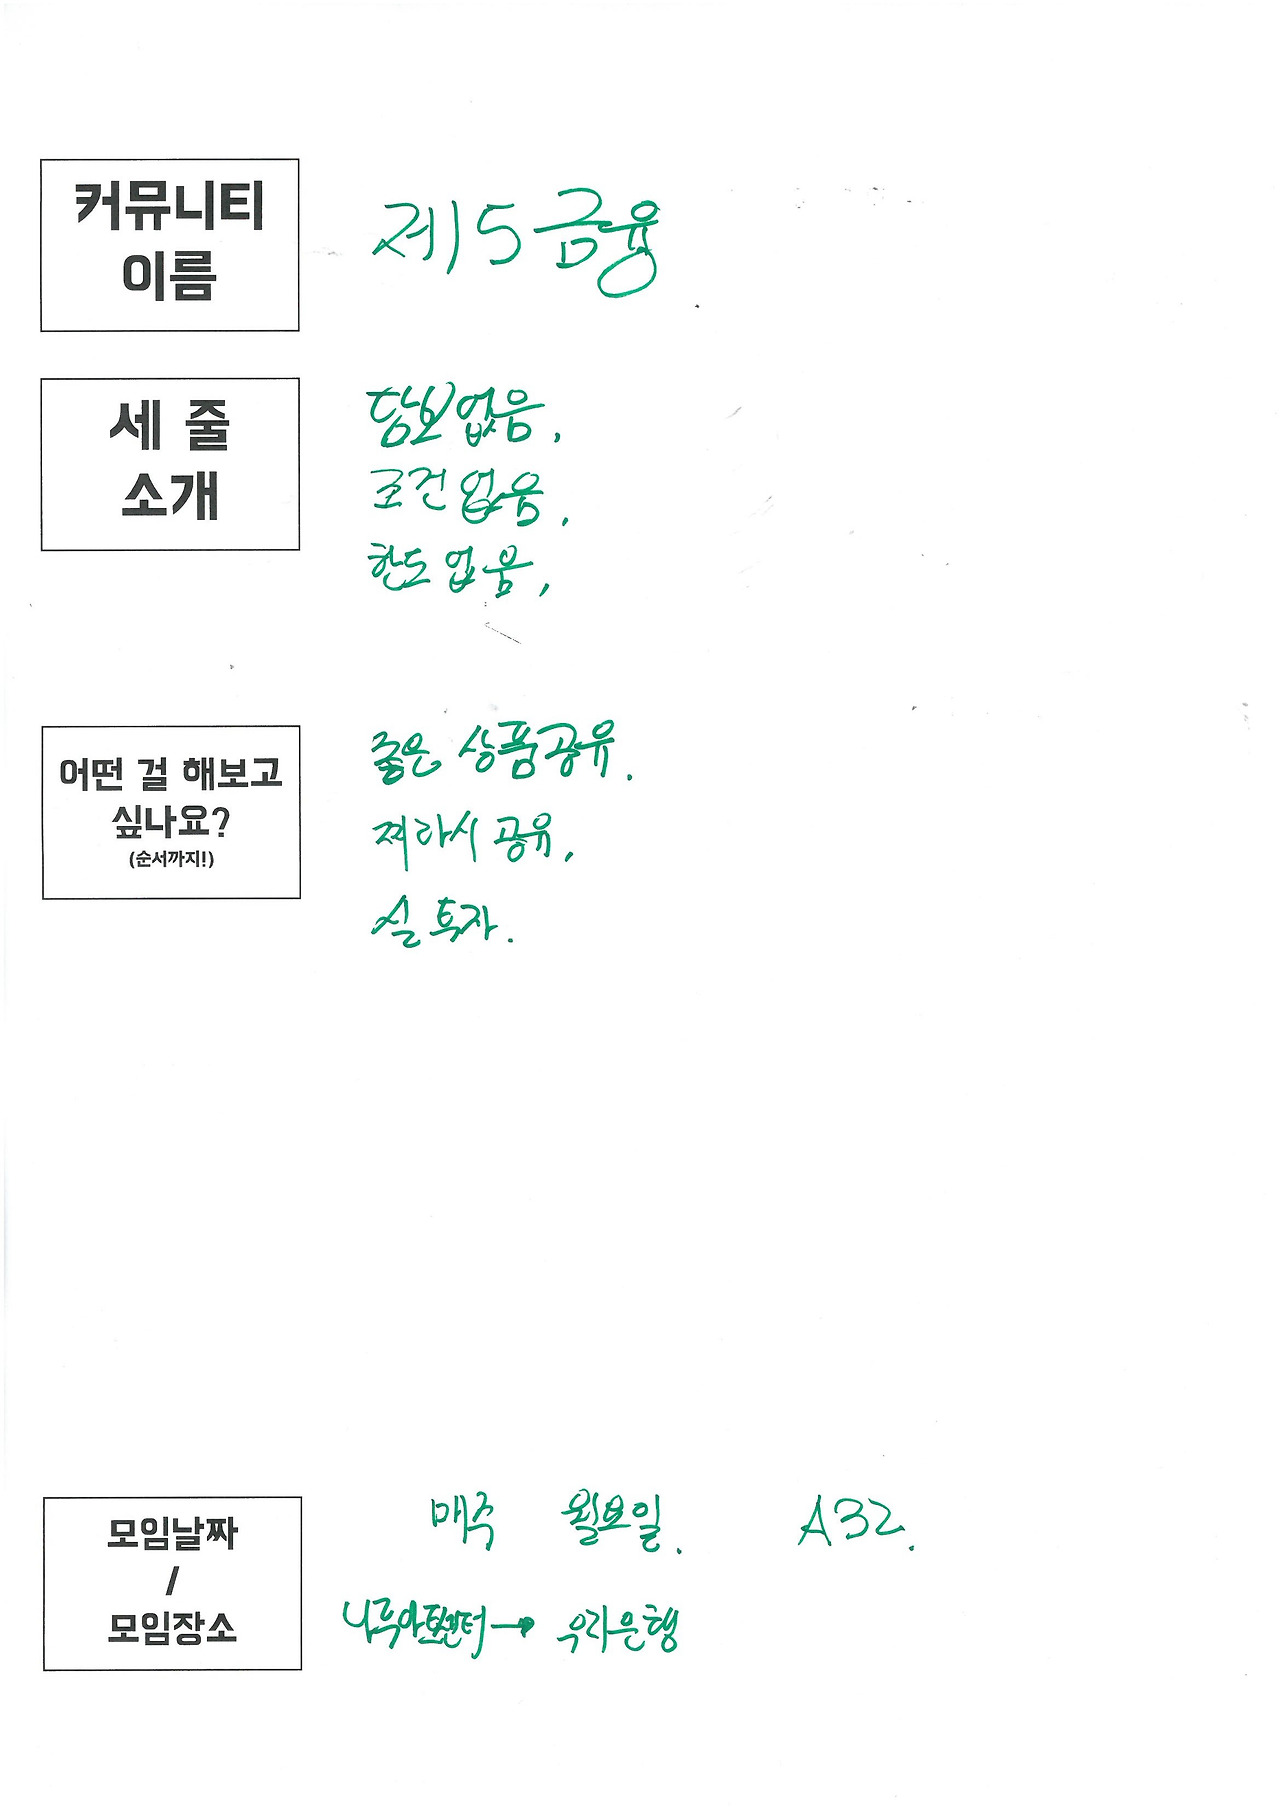 커뮤니티
이름
제15금융
세 줄
소개
담보없음.
조건없음.
한도없음.
어떤 걸 해보고
싶나요?
(순서까지!)
좋은 상품공유.
찌라시 공유.
실 투자.
모임날짜
/
모임장소
매주 월요일. A32.
나루아트센터 → 우리은행